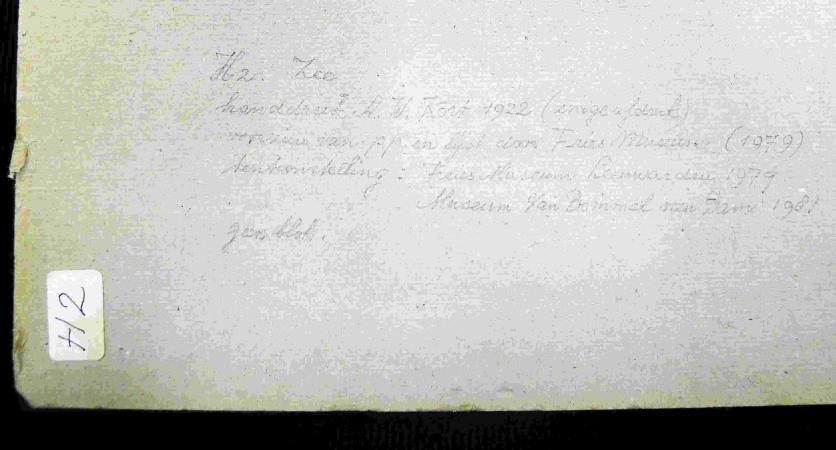 H2. Zee
handdruk A. W. Kort 1922 (enige afdruk)
voorzien van pp. en lijst door Fries Museum (1979)
tentoonstelling: Fries Museum Leeuwarden 1979
Museum Van Bommel van Dam 1981
geen blok.
H2